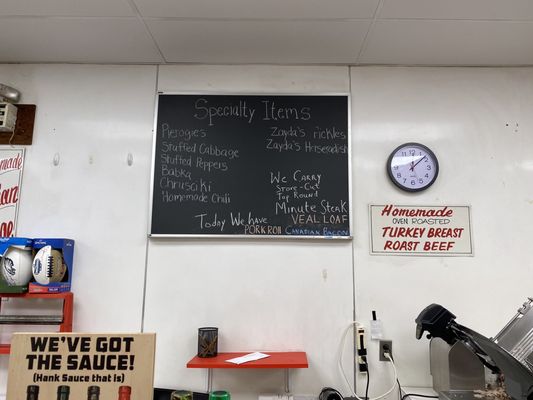 Specialty Items
Pierogies
Stuffed Cabbage
Stuffed Peppers
Babka
Chrusciki
Homemade Chili
Zayda's Pickles
Zayda's Horseradish
We Carry
Store-Cut
Top Round
Minute Steak
Today We have
VEAL LOAF
PORK ROLL
CANADIAN BACON
Homemade
OVEN ROASTED
TURKEY BREAST
ROAST BEEF
WE'VE GOT
THE SAUCE!
(Hank Sauce that is)